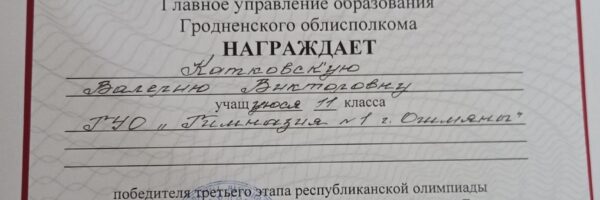 Главное управление образования
Гродненского облисполкома
НАГРАЖДАЕТ
Катковскую
Валерию Викторовну
учащуюся 11 класса
ГУО „Гимназия №1 г. Ошмяны"
победителя третьего этапа республиканской олимпиады